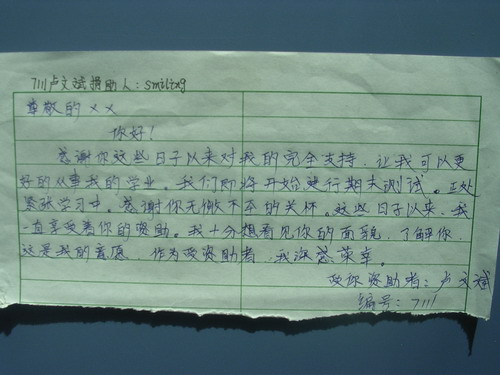 711卢文斌捐助人:smiling
尊敬的××
你好!
感谢你这些日子以来对我的完全支持,让我可以更
好的从事我的学业。我们即将开始进行期末测试。正处
紧张学习中。感谢你无微不至的关怀。这些日子以来,我
一直享受着你的资助。我十分想看见你的面貌,了解你,
这是我的意愿,作为受资助者,我深感荣幸。
受你资助者:卢文斌
编号:711